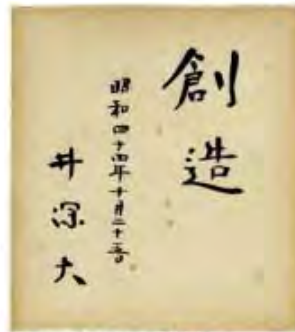 創造
昭和四十四年十月二十
井深大